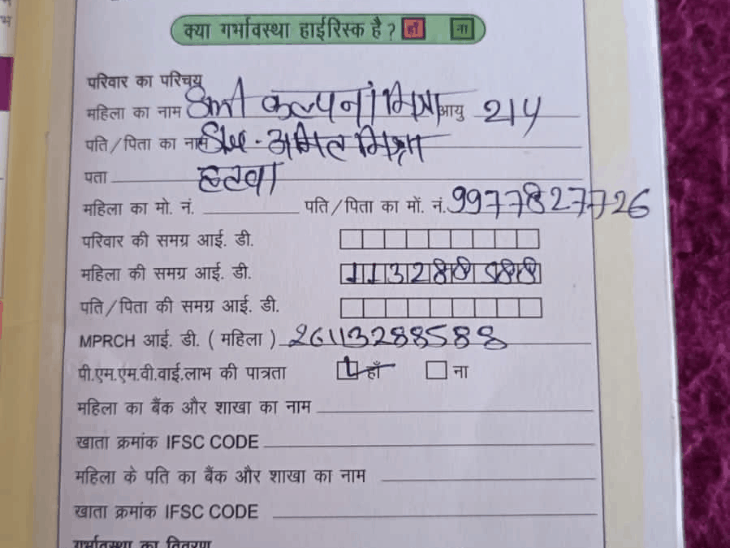 क्या गर्भावस्था हाईरिस्क है ? हाँ ना
परिवार का परिचय
महिला का नाम श्रीमती कल्पना मिश्रा आयु 21y
पति/पिता का नाम श्री अमित मिश्रा
पता हटवा
महिला का मो. नं. पति/पिता का मों. नं. 9977827726
परिवार की समग्र आई. डी.
महिला की समग्र आई. डी. 113288588
पति/पिता की समग्र आई. डी.
MPRCH आई. डी. ( महिला ) 26113288588
पी.एम.एम.वी.वाई.लाभ की पात्रता हाँ ना
महिला का बैंक और शाखा का नाम
खाता क्रमांक IFSC CODE
महिला के पति का बैंक और शाखा का नाम
खाता क्रमांक IFSC CODE
गर्भावस्था का विवरण